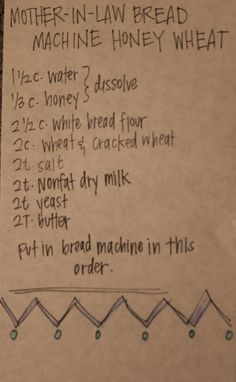 MOTHER-IN-LAW BREAD
MACHINE HONEY WHEAT
1 1/2 c. water } dissolve
1/3 c. honey
2 1/2 c. white bread flour
2c. wheat & cracked wheat
2t. salt
2t. Nonfat dry milk
2t yeast
2T. butter
Put in bread machine in this
order.